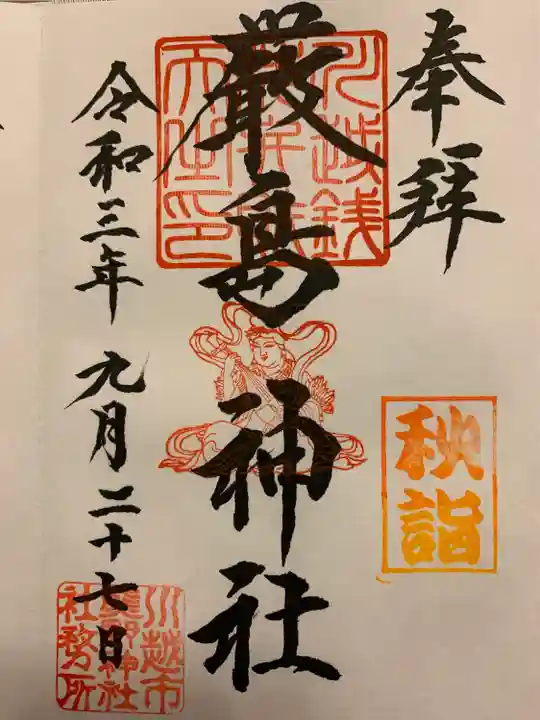 奉拝
秋詣
川越銭
洗弁財
天之印
厳島神社
令和三年九月二十七日
川越市
熊野神社
社務所